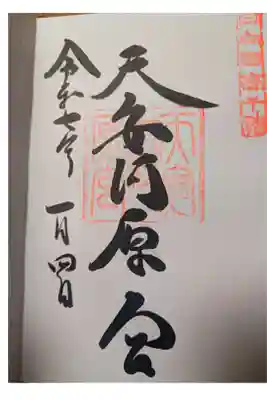 天安河原宮
令和七年
一月四日